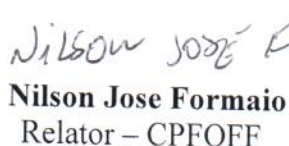 Nilson José F
Nilson Jose Formaio
Relator – CPFOFF